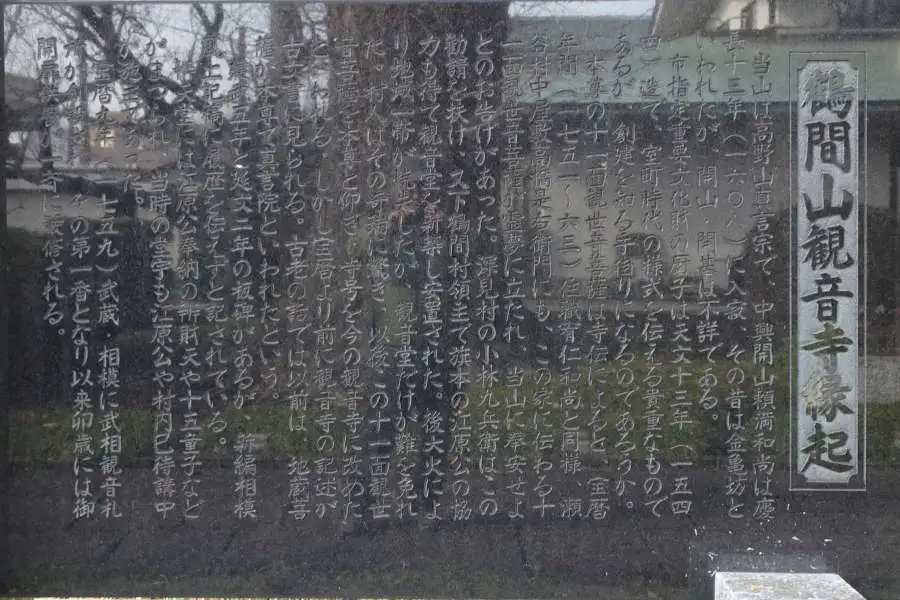 鶴間山観音寺縁起
当山は高野山真言宗で、中興開山頼満和尚は慶
長十三年(一六〇八)に入寂、その昔は金亀坊と
いわれたが、開山、開基は不詳である。
市指定重要文化財の厨子は天文十三年(一五四
四)造で、室町時代の様式を伝える貴重なもので
あるが、創建を知る手掛りになるのであろうか。
本尊の十一面観世音菩薩は寺伝によると、宝暦
年間(一七五一〜六三)住職宥仁和尚と同様、瀬
谷村中屋敷高橋是右衛門にも、この家に伝わる十
一面観世音菩薩が霊夢に立たれ、当山に奉安せよ
とのお告げがあった。深見村の小林九兵衛はこの
勧請を扶け、又下鶴間村領主で旗本の江原公の協
力も得て観音堂を新築し安置された。後大火によ
り地域一帯が焼失したが、観音堂だけが難を免れ
た。村人はその奇瑞に驚き、以後この十一面観世
音菩薩を本尊と仰ぎ、寺号を今の観音寺に改めた
といわれる。しかし宝暦より前に観音寺の記述が
古文書に見られる。古老の話では以前は、地蔵菩
薩が本尊で真言院といわれたという。
貞治五年、延文二年の板碑があるが、新編相模
風土記稿に原座を伝えずと記されている。
本堂には江原公奉納の弁財天や十五童子など
がまつられ、当時の堂宇も江原公や村内巳待講中
が
宝暦九年(一七五九)武蔵・相模に武相観音札
所が
その第一番となり以来卯歳には御
開扉法要が